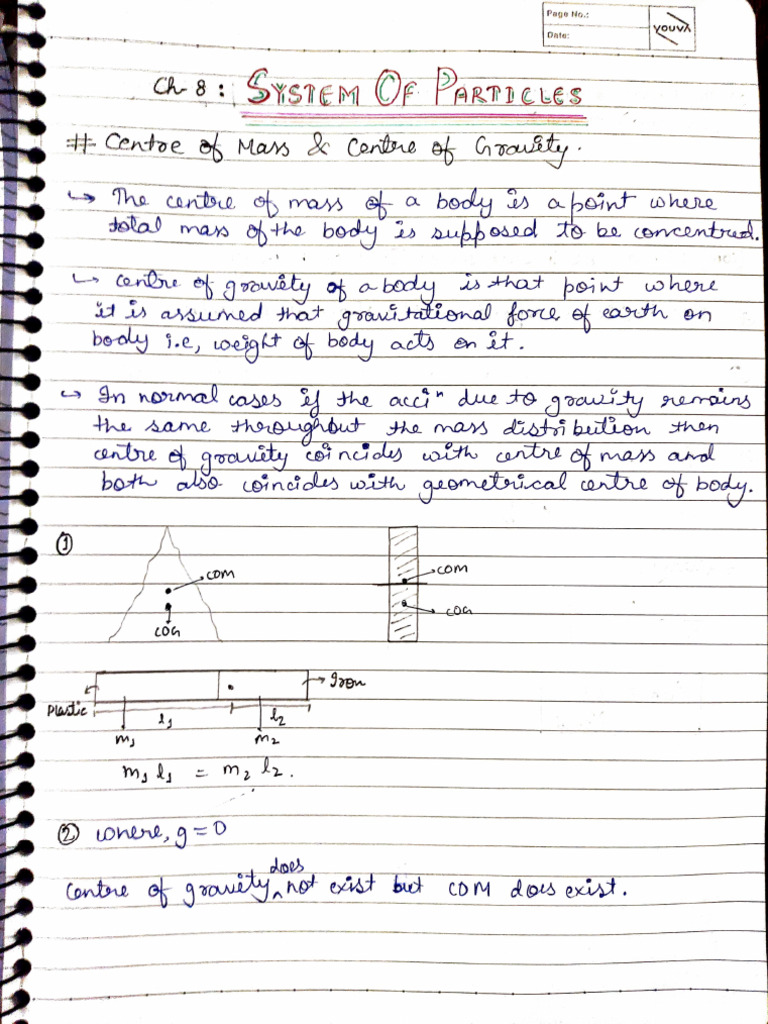 Page No.:
Date:
YOUVA
Ch 8 : SYSTEM OF PARTICLES
# Centre of Mass & Centre of Gravity.
↳ The centre of mass of a body is a point where
total mass of the body is supposed to be concentred.
↳ Centre of gravity of a body is that point where
it is assumed that gravitational force of earth on
body i.e, weight of body acts on it.
↳ In normal cases if the accⁿ due to gravity remains
the same throughout the mass distribution then
centre of gravity coincides with centre of mass and
both also coincides with geometrical centre of body.
①
COM
COG
COM
COG
Plastic
Iron
l₁
l₂
m₁
m₂
m₁ l₁ = m₂ l₂.
② where, g = 0
Centre of gravity does not exist but COM does exist.